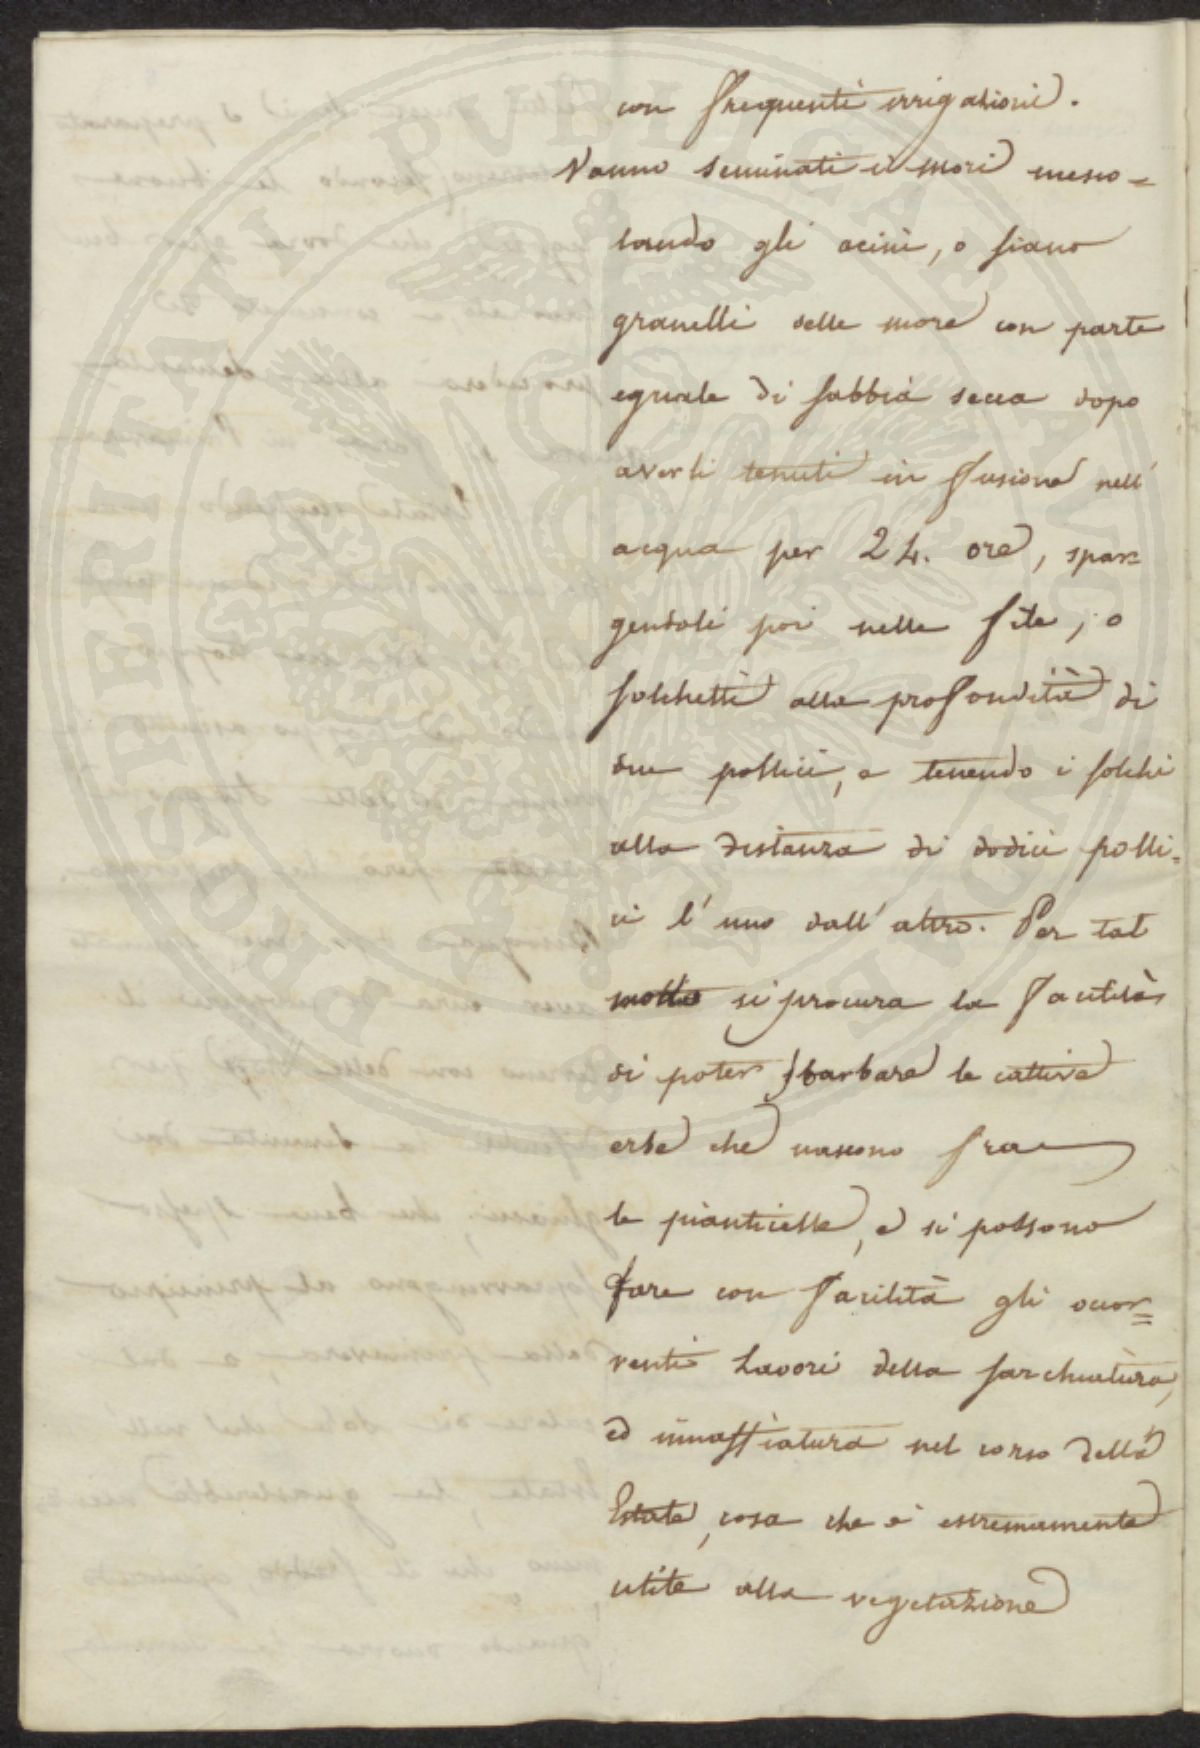 con frequenti irrigazioni.
Vanno seminati ei mori mesco=
lando gli acini, o siano
granelli delle more con parte
eguale di sabbia secca dopo
averli tenuti in fusione nell'
acqua per 24. ore, spar=
gendoli poi nelle file, o
solchetti alla profondità di
due pollici, e tenendo i solchi
alla distanza di dodici polli=
ci l'uno dall'altro. Per tal
si procura la facilità
di poter sbarbare le cattive
erbe che nascono fra
le pianticelle, e si possono
fare con facilità gli occor=
renti lavori della sarchiatura,
ed innaffiatura nel corso della
Estate, cosa che è estremamente
utile alla vegetazione
PROSPERITATI PVBLICAE AVGENDAE